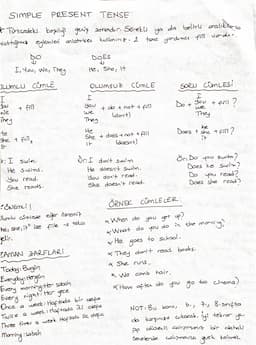 SIMPLE PRESENT TENSE
* Türkçedeki karşılığı geniş zamandır. Sürekli ya da belirli aralıklarla
yaptığımız eylemleri anlatırken kullanırız. 2 tane yardımcı fiil vardır.
DO DOES
I, You, We, They He, She, It
OLUMLU CÜMLE OLUMSUZ CÜMLE SORU CÜMLESİ
I
You
We + fiil
They
I
You
We + do + not + fiil
They (don't)
Do + I
you
we + fiil ?
They
He
She + fiil
it
He
She + does + not + fiil
it (doesn't)
Does + he
she + fiil ?
it
I swim.
He swims.
You read.
She reads.
Ör: I don't swim
He doesn't swim.
You don't read.
She doesn't read.
Ör: Do you swim?
Does he swim?
Do you read?
Does she read?
ÖNEMLİ!
ÖRNEK CÜMLELER
* When do you get up?
* What do you do in the morning?
* He goes to school.
* They don't read books.
* She runs.
* We comb hair.
* How often do you go to cinema?
ZAMAN ZARFLARI
Today: Bugün
Everyday: Hergün
Every morning: Her sabah
Every night: Her gece
Once a week: Haftada bir defa
Twice a week: Haftada iki defa
Three times a week: Haftada üç defa
Morning: Sabah
NOT: Bu konu, 6., 7., 8. sınıfta